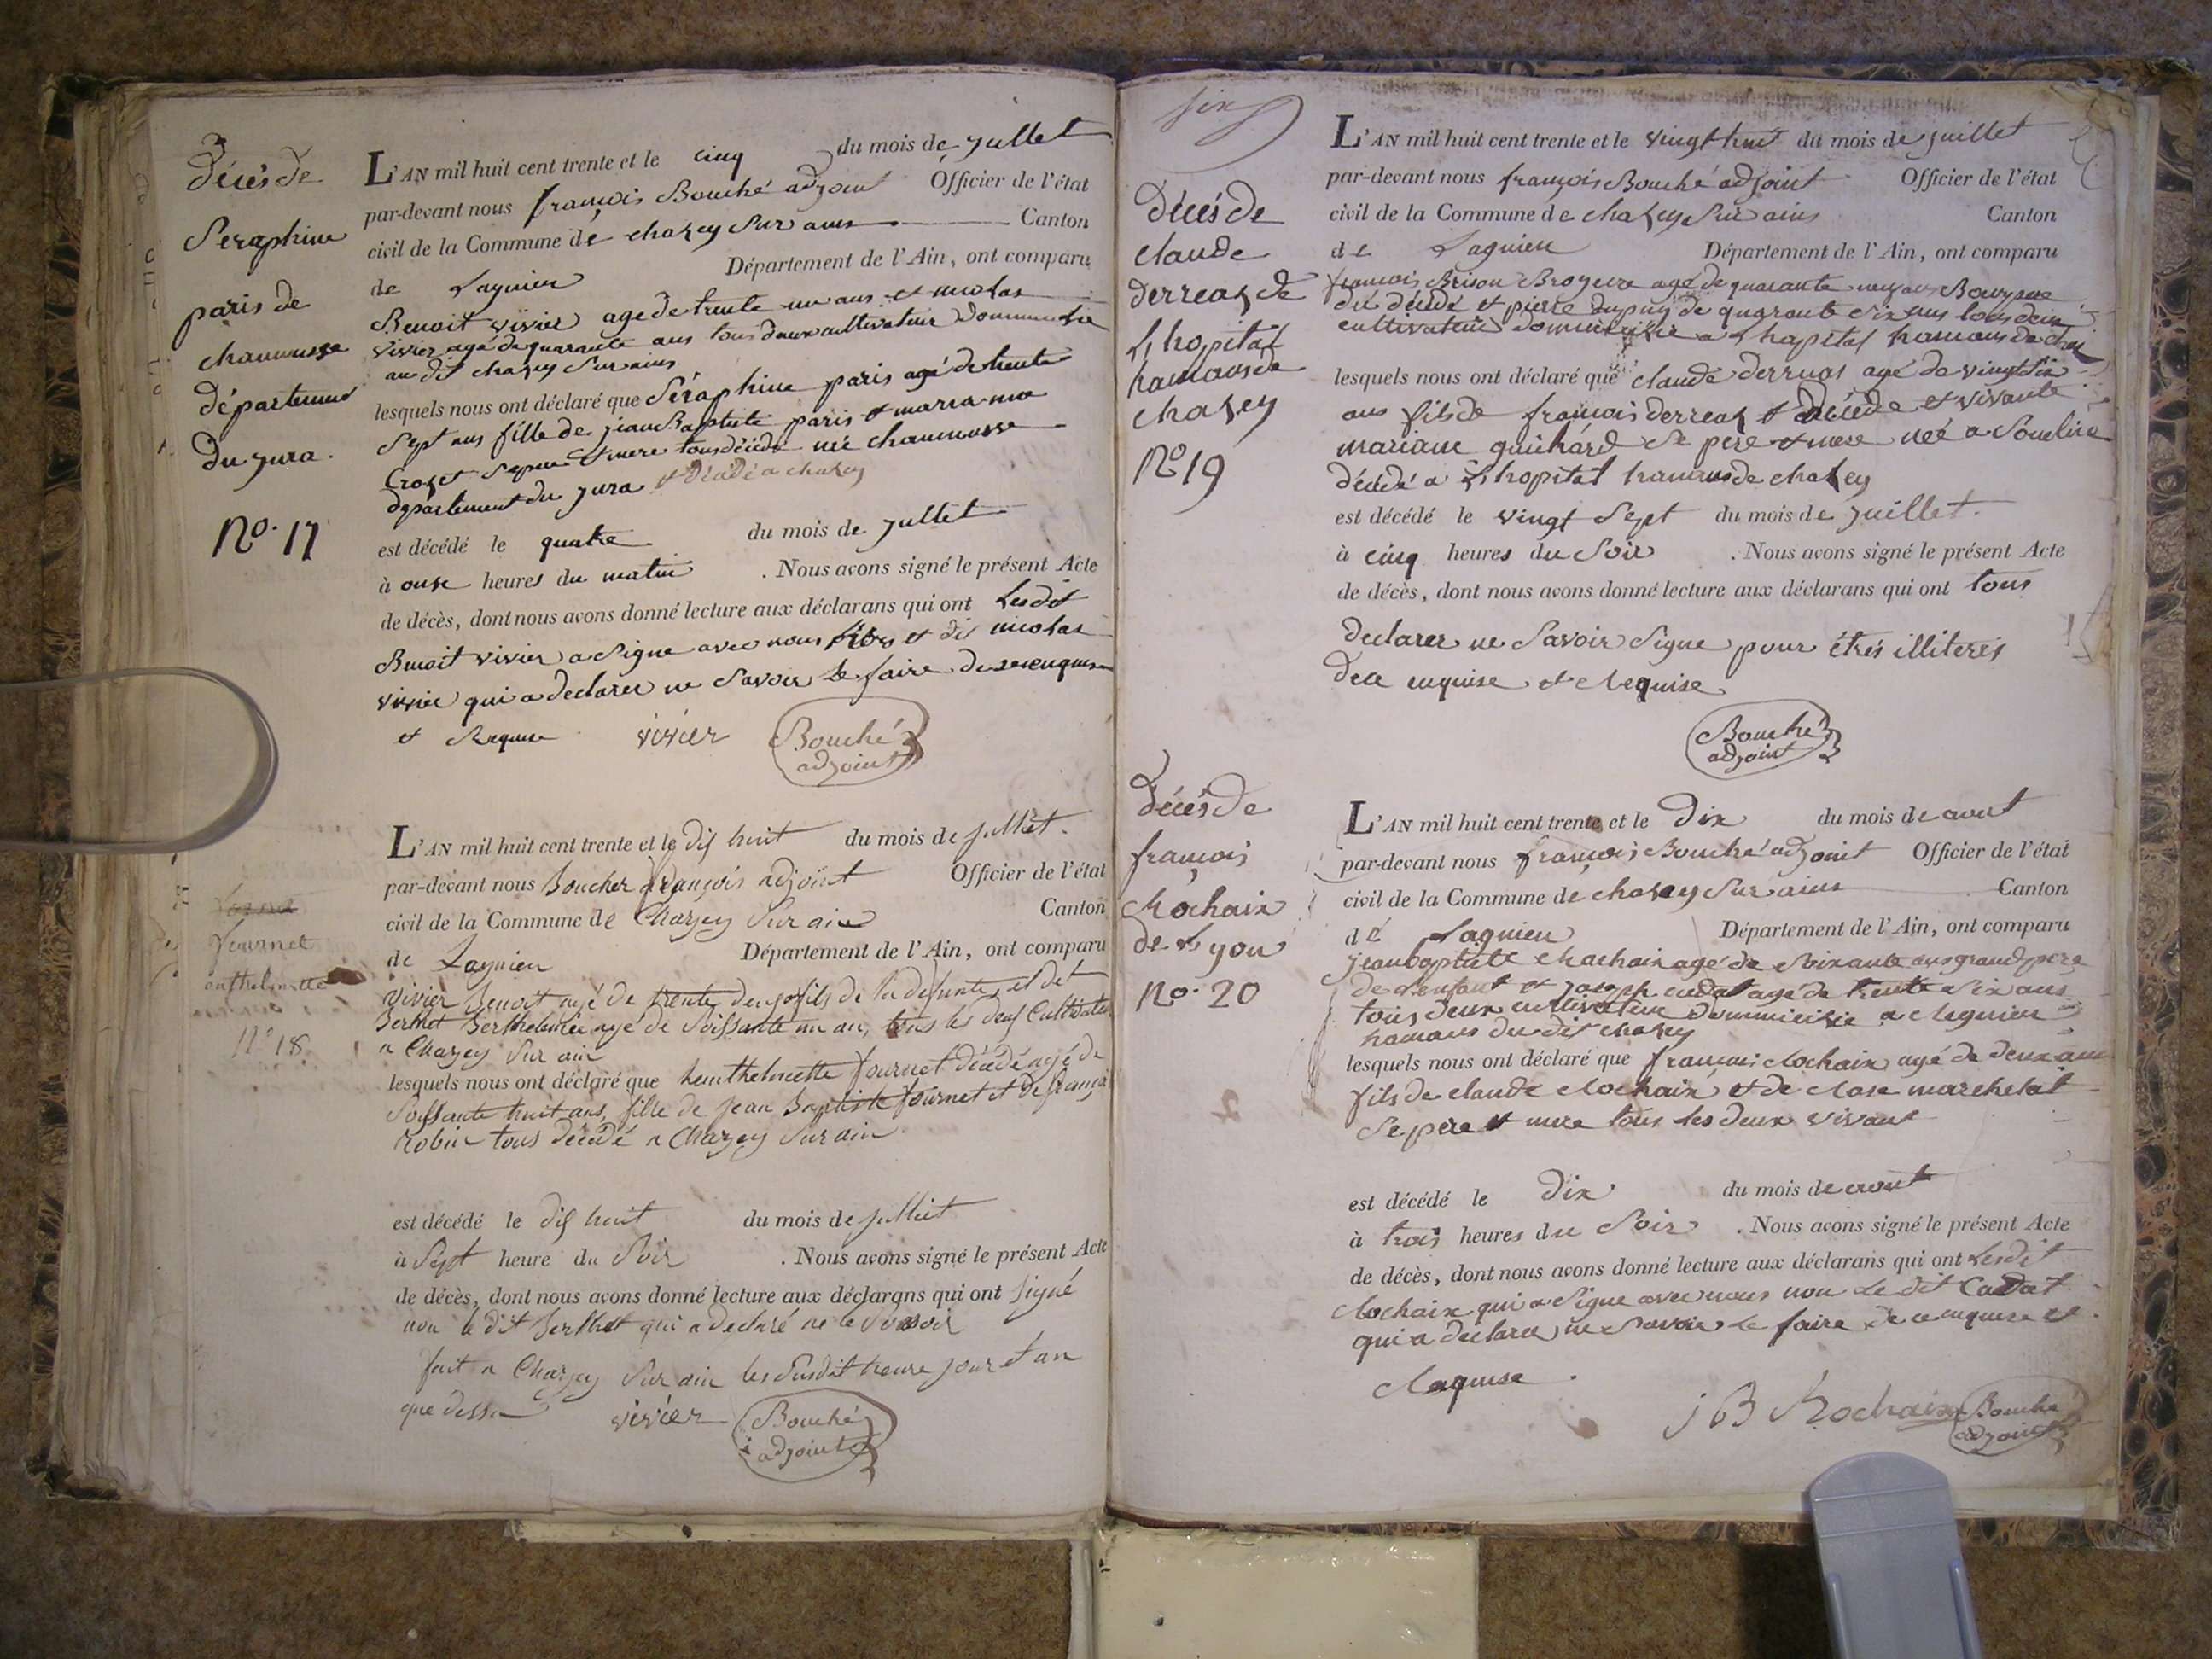 Décès de
Seraphine
paris de
chaumusse
département
du jura.
No. 17
L'AN mil huit cent trente et le cinq du mois de jullet
par-devant nous françois Bouché adjoint Officier de l'état
civil de la Commune de chazey Sur ains Canton
de Lagnieu Département de l'Ain, ont comparu
Benoit vivier age de trente un ans et nicolas
vivier agé de quarante ans tous deux cultivateur
au dit chazey Sur ains
lesquels nous ont déclaré que Séraphine paris agé de trente
Sept ans fille de jean Baptiste paris et
Crozet tous décédé née chaumusse
département du jura et décédé a chazey
est décédé le quatre du mois de jullet
à onze heures du matin . Nous avons signé le présent Acte
de décès, dont nous avons donné lecture aux déclarans qui ont Lesdit
Benoit vivier a Signe avec nous et dit nicolas
vivier qui a declarer ne Savoir Le faire de ce enquise
et Requise vivier Bouché
adjoint
fournet
N° 18
L'AN mil huit cent trente et le dis huit du mois de julliet.
par-devant nous Boucher françois adjoint Officier de l'état
civil de la Commune de Chazey Sur ain Canton
de Lagnieu Département de l'Ain, ont comparu
Vivier Benoit agé de trente deux fils de la defunte, et de
Berthet Berthelmie agé de Soissante un an, tous les deux Cultivateur
a Chazey Sur ain
lesquels nous ont déclaré que fournet décédé agé de
Soissante huit ans, fille de jean Baptiste fournet et de françoi
Robin tous décédé a Chazey Sur ain
est décédé le dis huit du mois de julliet
à Sept heure du Soir . Nous avons signé le présent Acte
de décès, dont nous avons donné lecture aux déclarans qui ont signé
non le dit Berthet qui a declaré ne le Savoir
fait a Chazey Sur ain les Susdit heure jour et an
que dessu vivier Bouché
adjoint
six
Décés de
claude
derreaz de
L hopital
hamaus de
chazey
No 19
L'AN mil huit cent trente et le vingt huit du mois de juillet
par-devant nous françois Bouché adjoint Officier de l'état
civil de la Commune de chazey Sur ains Canton
de Lagnieu Département de l'Ain, ont comparu
françois Brison Broyeure agé de quarante neuf ans
du décédé et pierre dupuis de quarante six ans tous deux
cultivateur a L hopital hamaus de chaz
lesquels nous ont déclaré que claude derreas agé de vingt Six
ans fils de françois derreaz et décéde et vivante
mariane guichard Se pere et mere neé a
décédé a L hopital hamaus de chazey
est décédé le vingt Sept du mois de juillet.
à cinq heures du Soir . Nous avons signé le présent Acte
de décès, dont nous avons donné lecture aux déclarans qui ont tous
declarer ne Savoir Signe pour étres illiteres
de ce enquise et Requise
Bouché
adjoint
Décés de
françois
Rochaix
de Lyon
No. 20
L'AN mil huit cent trente et le Dix du mois de aout
par-devant nous françois Bouché adjoint Officier de l'état
civil de la Commune de chazey Sur ains Canton
dé Lagnieu Département de l'Ain, ont comparu
jean baptiste Rochaix agé de Soixante ans grand pere
de L enfant et joseph cadat agé de trente Six ans
tous deux cultivateur a Rignieu
hamaus du dit chazey
lesquels nous ont déclaré que françois Rochaix agé de deux ans
fils de claude Rochaix et de Rose marchelat
Se pere et mere tous les deux vivant
est décédé le Dix du mois de aout
à trois heures du Soir . Nous avons signé le présent Acte
de décès, dont nous avons donné lecture aux déclarans qui ont Lesdit
Rochaix qui a Signe avec nous non Le dit Cadat
qui a declarer ne Savoir Le faire de ce enquise et
Requise .
JB Rochaix Bouché
adjoint